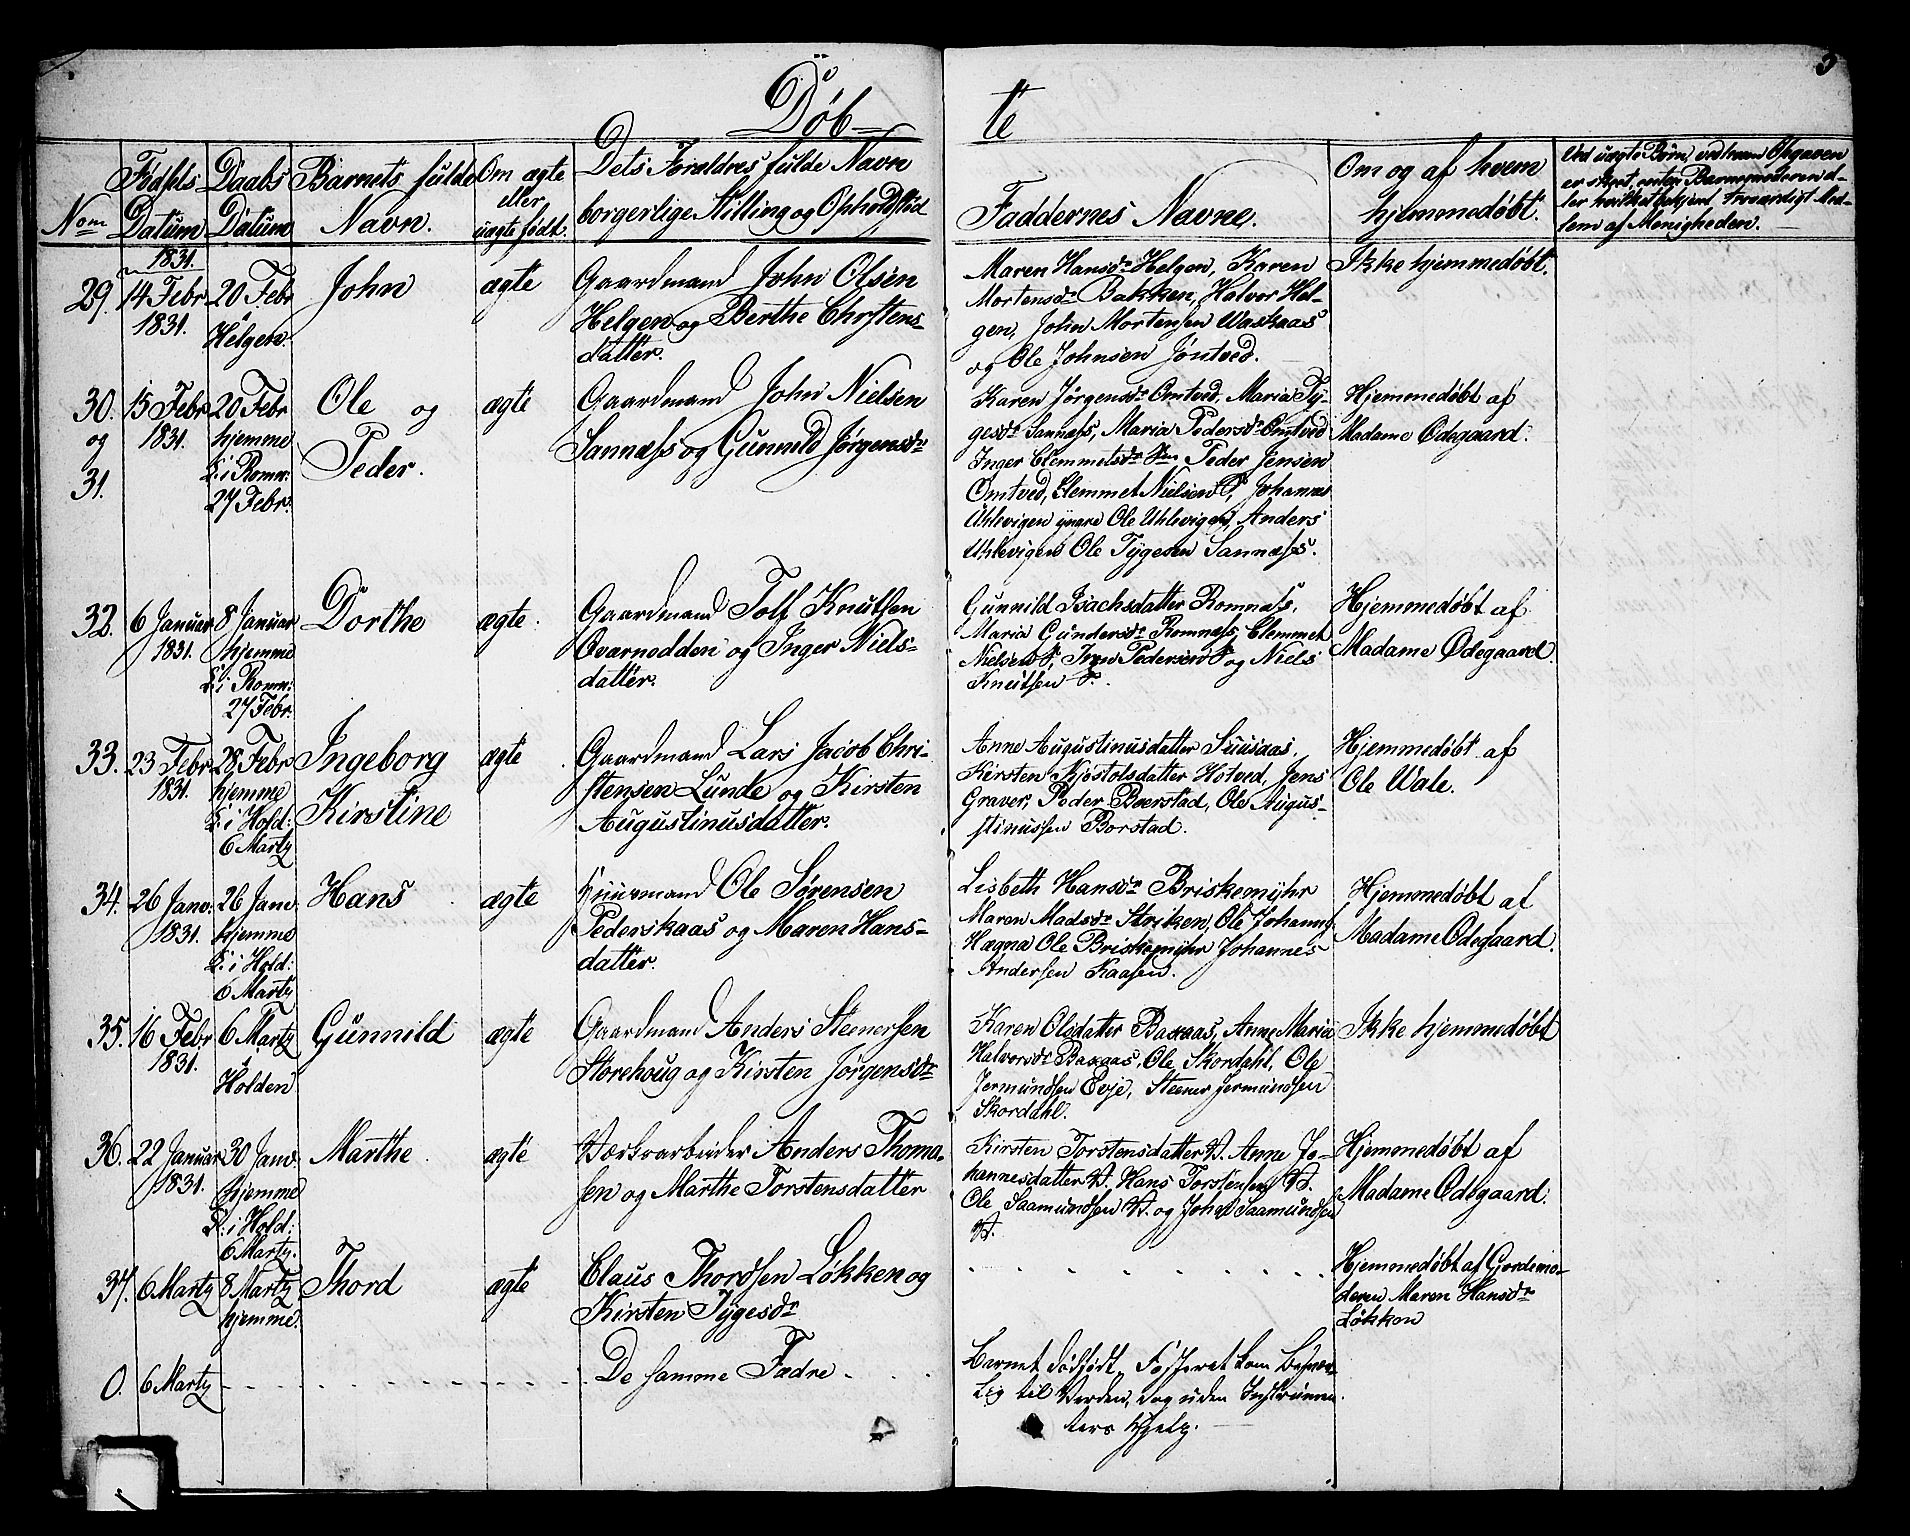 Döb— te
3
Nom
Fødsels Datum
Daabs Datum
Barnets fulde Navn.
Om ægte eller uægte født.
Dets Foraldres fulde Navn
borgerlige Stilling og Opholdstæd
Faddernes Navne.
Om og af hvem
hjemmedøbt.
Ved uægte Børn, ved hvem Opgaven
er skeet, enten Barnemoderen el-
ler hvilket bekjent troværdigt Med-
lem af Menigheden.
1831.
29. 14 Febr 1831. 20 Febr Helgen. John ægte
Gaardmand John Olsen
Helgen og Berthe Chrstens-
datter.
Maren Hansdr Helgen, Karen
Mortensdr Bakken, Halvor Hel-
gen, John Mortensen Waskaas
og Ole Johnsen Jøntved.
Ikke hjemmedøbt.
30. og 31. 15 Febr 1831. 20 Febr hjemme D: i Romn: 27 Febr. Ole og Peder. ægte
Gaardmand John Nielsen
Sannæss og Gunnild Jørgensdr
Karen Jørgensdr Omtved, Maria Ty-
gesdr Sannæss, Maria Pedersdr Omtved
Inger Clemmetsdr Peder Jensen
Omtved, Clemmet Nielsen Johannes
Uhlevigen yngre Ole Uhlevigen, Anders
Uhlevigen Ole Tygesen Sannæss.
Hjemmedøbt af
Madame Ødegaard.
32. 6 Januar 1831. 8 Januar hjemme D: i Romn: 27 Febr. Dorthe ægte.
Gaardmand Tolf Knutsen
Qvarnodden og Inger Niels-
datter.
Gunnild Isachsdatter Romnæss,
Maria Gundersdr Romnæss, Clemmet
Nielsen Pedersen og Niels
Knutsen
Hjemmedøbt af
Madame Ødegaard.
33. 23 Febr 1831. 28 Febr hjemme D: i Hold: 6 Marty Ingeborg Kirstine ægte
Gaardmand Lars Jacob Chri-
stensen Lunde og Kirsten
Augustinusdatter.
Anne Augustinusdatter Suusaas,
Kirsten Kjøstolsdatter Hotved, Jens
Graver, Peder Borstad, Ole Augus-
stinussen Borstad.
Hjemmedøbt af
Ole Wale.
34. 26 Janv: 1831. 26 Janv hjemme D: i Hold: 6 Marty Hans ægte
Huusmand Ole Sørensen
Pederskaas og Maren Hans-
datter.
Lisbeth Hansdr Briskemyhr
Maren Madsdr Striken, Ole Johanns
Hægna Ole Briskemyhr Johannes
Andersen Kaasen.
Hjemmedøbt af
Madame Ødegaard.
35. 16 Febr 1831. 6 Marty Holden Gunnild ægte
Gaardmand Anders Steenersen
Storehoug og Kirsten Jørgensdr
Karen Olsdatter Baxaas, Anne Maria
Halvorsdr Baxaas, Ole Skordahl, Ole
Jermundsen Evje, Steener Jermundsen
Skordahl.
Ikke hjemmedøbt
36. 22 Januar 1831. 30 Janv: hjemme D: i Hold: 6 Marty. Marthe. ægte
Værksarbeider Anders Thoma-
sen og Marthe Torstensdatter
Kirsten Torstensdatter V. Anne Jo-
hannesdatter V. Hans Torstensen V.
Ole Saamundsen V. og John Saamundsen
V.
Hjemmedøbt af
Madame Ødegaard.
37. 6 Marty 8 Marty hjemme. Thord ægte
Claus Thordsen Løkken og
Kirsten Tygesdr
Hjemmedøbt af Gjordemo-
deren Maren Hansdr
Løkken
0. 6 Marty De samme Fædre.
Barnet dødfødt, Fosteret kom besvær-
lig til Verden, dog uden Instrumen-
ters Hjelp.